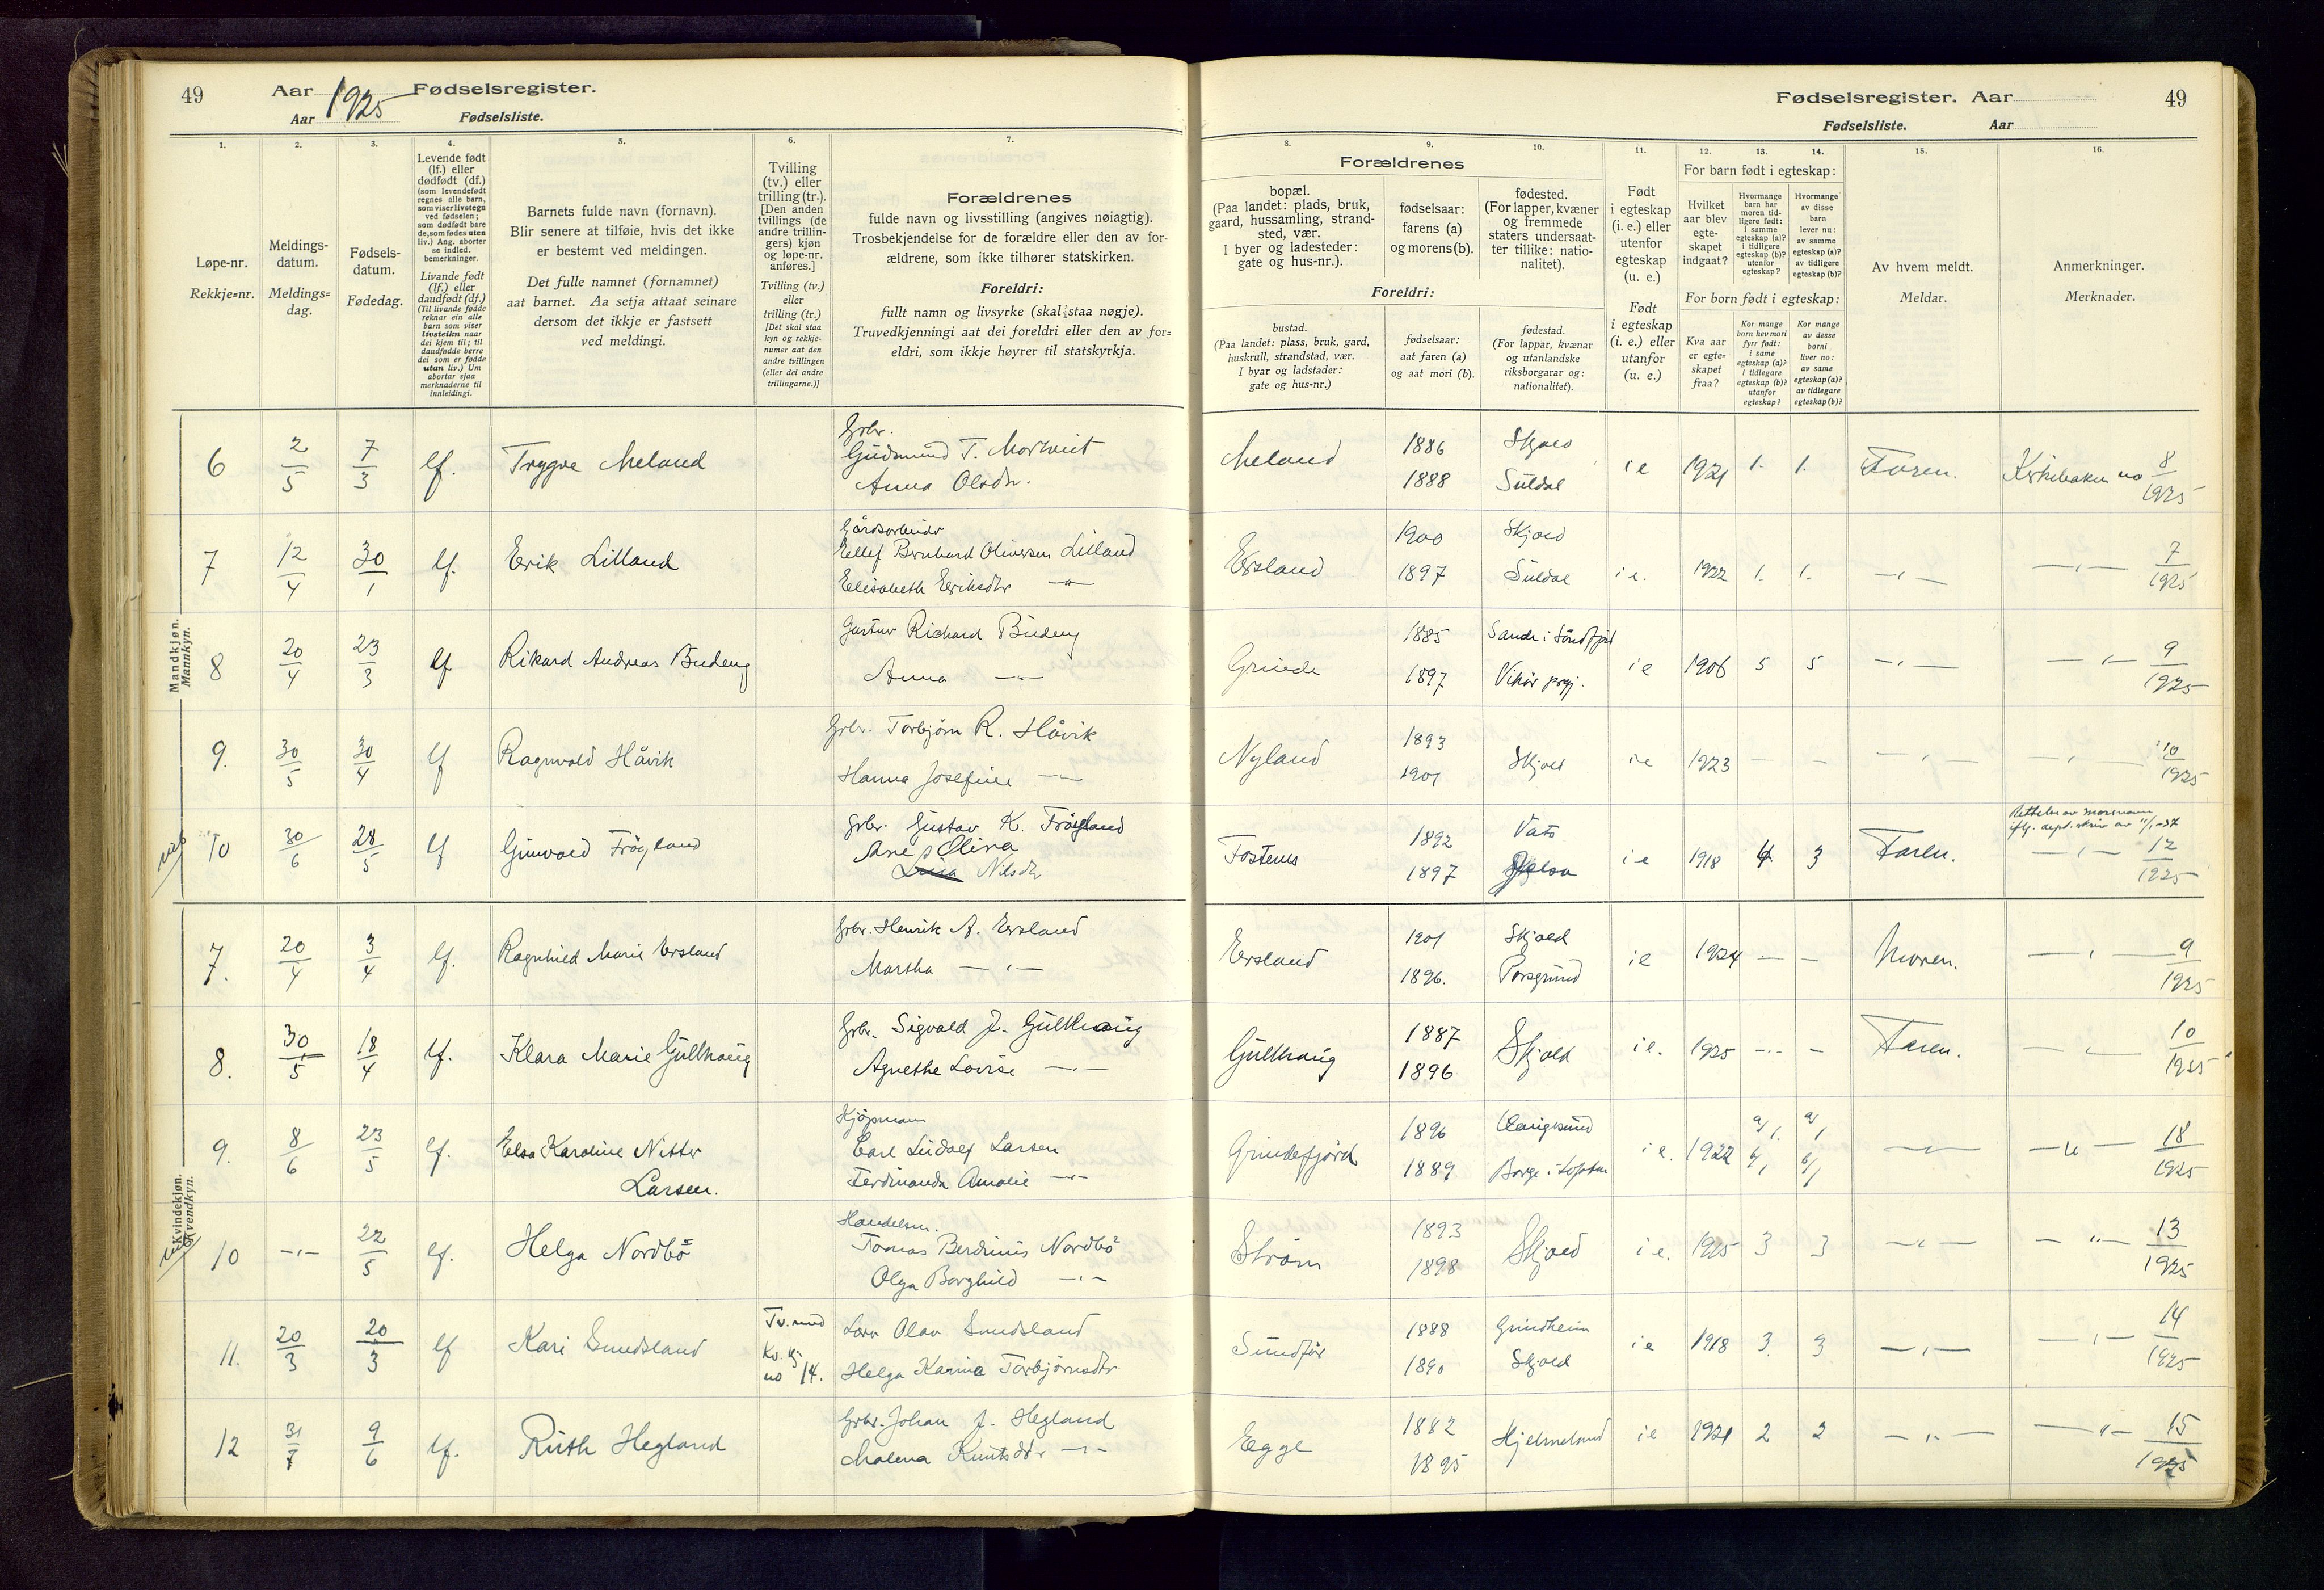 49
Aar 1925 Fødselsregister.
Aar Fødselsliste.
Fødselsregister. Aar
49
Fødselsliste. Aar
1.
2.
3.
4.
5.
6.
7.
8.
9.
10.
11.
12.
13.
14.
15.
16.
Løpe-nr.
Rekkje=nr.
Meldings-
datum.
Meldings=
dag.
Fødsels-
datum.
Fødedag.
Levende født
(lf.) eller
dødfødt (df.)
(som levendefødt
regnes alle barn,
som viser livstegn
ved fødselen;
som dødfødt bare
de, som fødes uten
liv.) Ang. aborter
se indled.
bemerkninger.
Livande født
(lf.) eller
daudfødt (df.)
(Til livande fødde
reknar ein alle
barn som viser
livsteikn naar
dei kjem til; til
daudfødde berre
dei som er fødde
utan liv.) Um
abortar sjaa
merknaderne til
innleidingi.
Barnets fulde navn (fornavn).
Blir senere at tilføie, hvis det ikke
er bestemt ved meldingen.
Det fulle namnet (fornamnet)
aat barnet. Aa setja attaat seinare
dersom det ikkje er fastsett
ved meldingi.
Tvilling
(tv.) eller
trilling (tr.).
[Den anden
tvillings (de
andre trillin-
gers) kjøn
og løpe-nr.
anføres.]
Tvilling (tv.)
eller
trilling (tr.)
[Det skal staa
kyn og rekkje-
numer aat den
andre tvillingen
(eller dei andre
trillingarne.)]
Forældrenes
fulde navn og livsstilling (angives nøiagtig).
Trosbekjendelse for de forældre eller den av for-
ældrene, som ikke tilhører statskirken.
Foreldri:
fullt namn og livsyrke (skal staa nøgje).
Truvedkjenningi aat dei foreldri eller den av for=
eldri, som ikkje høyrer til statskyrkja.
Forældrenes
bopæl.
(Paa landet: plads, bruk,
gaard, hussamling, strand-
sted, vær.
I byer og ladesteder:
gate og hus-nr.).
fødselsaar:
farens (a)
og morens (b).
fødested.
(For lapper, kvæner
og fremmede
staters undersaat-
ter tillike: natio-
nalitet).
Foreldri:
bustad.
(Paa landet: plass, bruk, gard,
huskrull, strandstad, vær.
I byar og ladstader:
gate og hus=nr.)
fødselsaar:
aat faren (a)
og aat mori (b).
fødestad.
(For lappar, kvænar
og utanlandske
riksborgarar og:
nationalitet).
Født
i egteskap
(i. e.) eller
utenfor
egteskap
(u. e.)
Født
i egteskap
(i. e.) eller
utanfor
(u. e.)
For barn født i egteskap:
Hvilket
aar blev
egte-
skapet
indgaat?
Hvormange
barn har
moren tid-
ligere født:
i samme
egteskap (a)?
i tidligere
egteskap (b)?
utenfor
egteskap?
Hvormange
av disse
barn
lever nu:
av samme
egteskap (a)?
av tidligere
egteskap (b)?
For born født i egteskap:
Kva aar
er egte=
skapet
fraa?
Kor mange
born hev mori
fyrr født:
i same
egteskap (a)?
i tidlegare
egteskap (b)?
utanfor
egteskap?
Kor mange
av desse
borni
liver no:
av same
egteskap (a)?
av tidlegare
egteskap (b)?
Av hvem meldt.
Meldar.
Anmerkninger.
Merknader.
Mandkjøn.
Mannkyn.
6 2/5 7/3 lf. Trygve Meland
Grbr.
Gudmund T. Mortveit
Anna Olsdtr.
Meland 1886 Skjold
1888 Suldal
i e 1921 1. 1. Faren. Kirkeboken no 8/1925
7 12/4 30/1 lf. Erik Lilland
Gårdsarbeider
Ellef Bernhard Oliversen Lilland
Elisabeth Eriksdtr —"—
Ersland 1900 Skjold
1897 Suldal
i e. 1922 1. 1. —"— —"— 7/1925
8 20/4 23/3 lf Rikard Andreas Budeng
Gustav Richard Budeng
Anna —"—
Grinde 1885 Sande i Söndfjord
1897 Vikør prgj.
i e 1906 5 5 —"— —"— 9/1925
9. 30/5 30/4 lf Ragnvald Håvik
Grbr. Torbjørn R. Håvik
Hanna Josefine —"—
Nyland 1893
1901 Skjold
i e 1923 — — —"— —"— 10/1925
10 30/6 28/5 lf Gunvald Frøyland
Grbr. Gustav K. Frøyland
Ane Olina
Nilsdtr
Fosternes 1892 Vats
1897 Jelsa
i e 1918 4. 3 Faren.
Rettelse av morsnavn
iflg. dept. skriv av 11/1-37
—"— 12/1925
Kvindekjøn.
Kvendkyn.
7. 20/4 3/4 lf. Ragnhild Marie Ersland
Grbr. Henrik A. Ersland
Martha —"—
Ersland 1901 Skjold
1896. Porsgrund
i e 1924 — — Moren. —"— 9/1925
8. 30/5 18/4 lf. Klara Marie Gullhaug
Grbr. Sigvald J. Gullhaug
Agnethe Lovise —"—
Gullhaug 1887
1896 Skjold
i e. 1925 —"— — Faren. —"— 10/1925
9. 8/6 23/5 lf. Elsa Karoline Nitter
Larsen.
Kjöpmann
Carl Ludolf Larsen
Ferdinanda Amalie —"—
Grindefjord 1896 Haugesund
1889 Borge i Lofoten
i e. 1922 a/1. b/1 a/1 b/1 —"— —"— 18/1925
10 —"— 22/5 lf. Helga Nordbö
Handelsm.
Tomas Berdinus Nordbö
Olga Borghild —"—
Strøm 1893
1898 Skjold
i e. 1925 3 3 —"— —"— 13/1925
11. 20/3 20/3 lf Kari Sundsland
Tv. med
Kv. kj
no 14.
Lars Olav Sundsland
Helga Karina Torbjørnsdtr
Sundför 1888 Grindheim
1890 Skjold
i e 1918 3. 3 —"— —"— 14/1925
12 31/7 9/6 lf. Ruth Hegland
Grbr. Johan J. Hegland
Malena Knutsdtr —"—
Egge 1882
1895 Hjelmeland
i e 1921 2 2 —"— —"— 15/1925